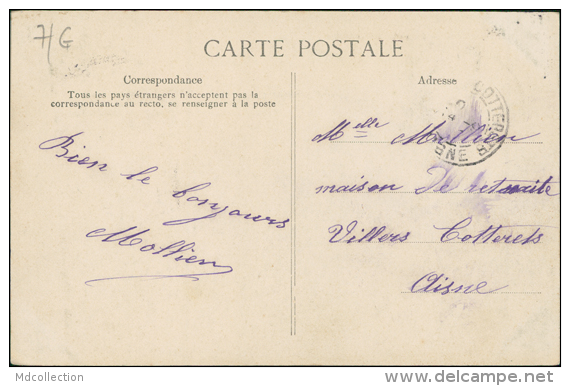 7/G
CARTE POSTALE
Correspondance
Tous les pays étrangers n'acceptent pas la
correspondance au recto, se renseigner à la poste
Bien le bonjours
Mollien
Adresse
COTTERETS
AISNE
Melle Mollien
maison De retraite
Villers Cotterets
Aisne
Mdcollection
delcampe.net